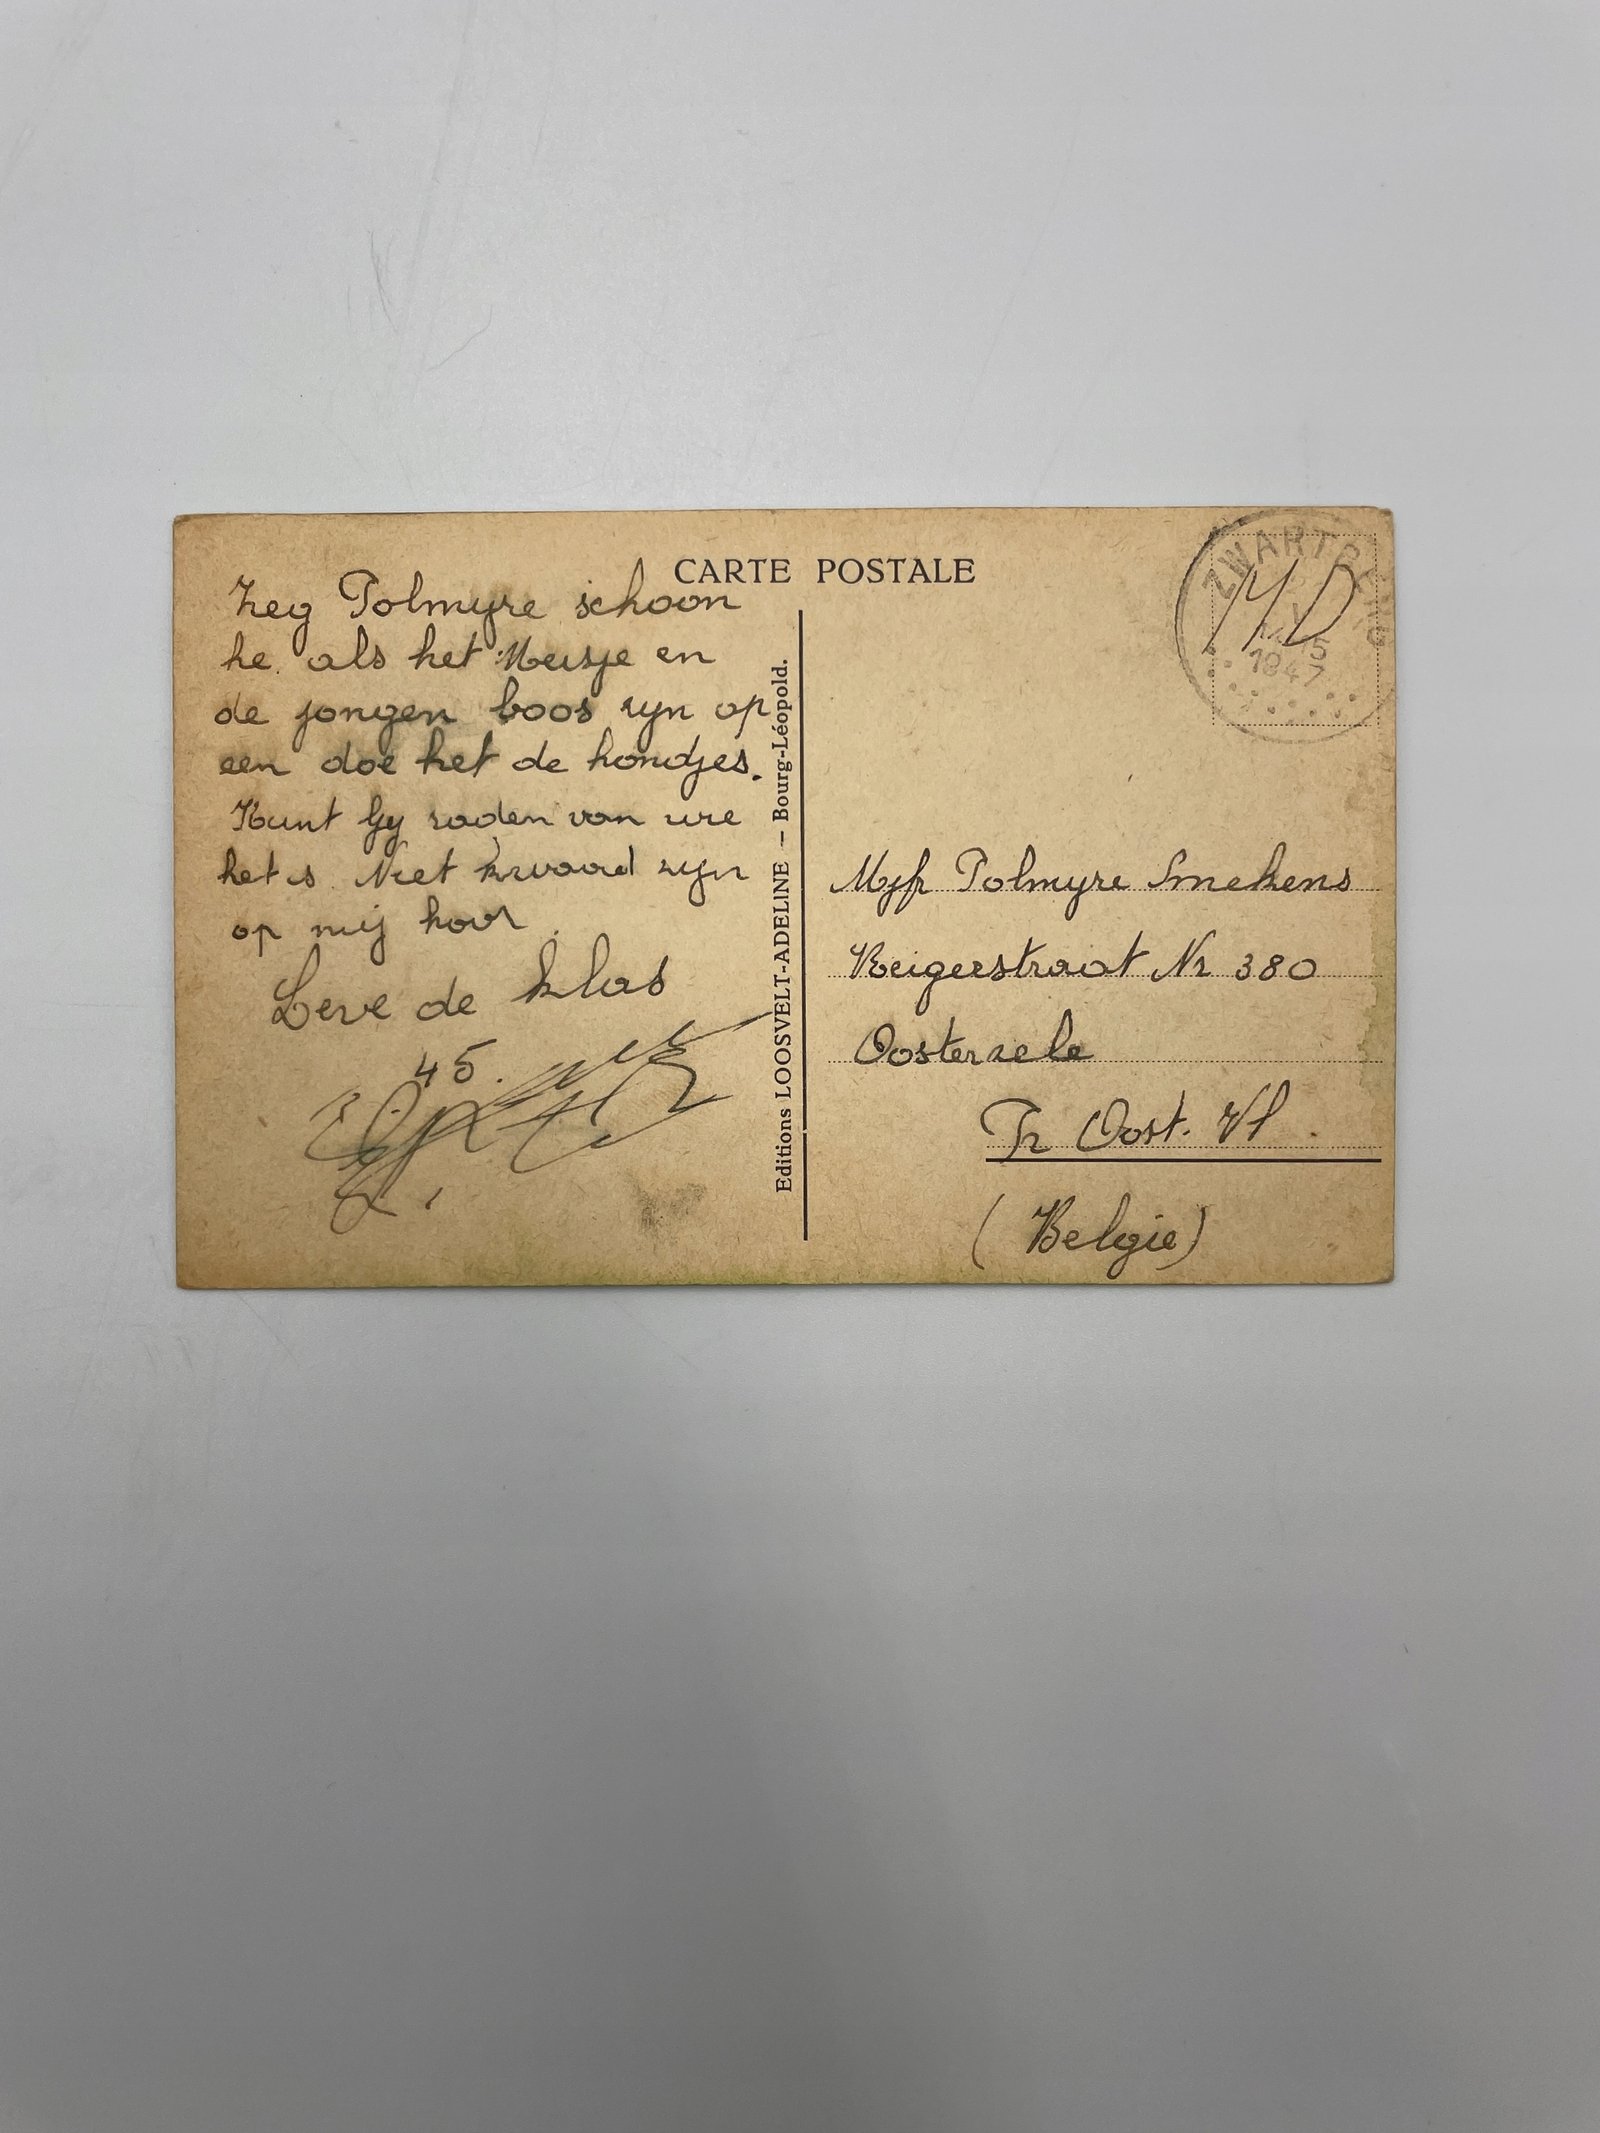 CARTE POSTALE
Zeg Polmyre schoon
he. als het Meisje en
de jongen boos zyn op
een doe het de hondjes.
Kunt Gy raden van wie
het is. Niet kwaad zyn
op mij hoor.
Leve de klas
45.
Editions LOOSVELT-ADELINE – Bourg-Léopold.
ZWARTBERG
MD
15
1947
Mejfr Polmyre Smekens
Reigerstraat Nr 380
Oosterzele
Pr Oost. Vl.
(Belgie)